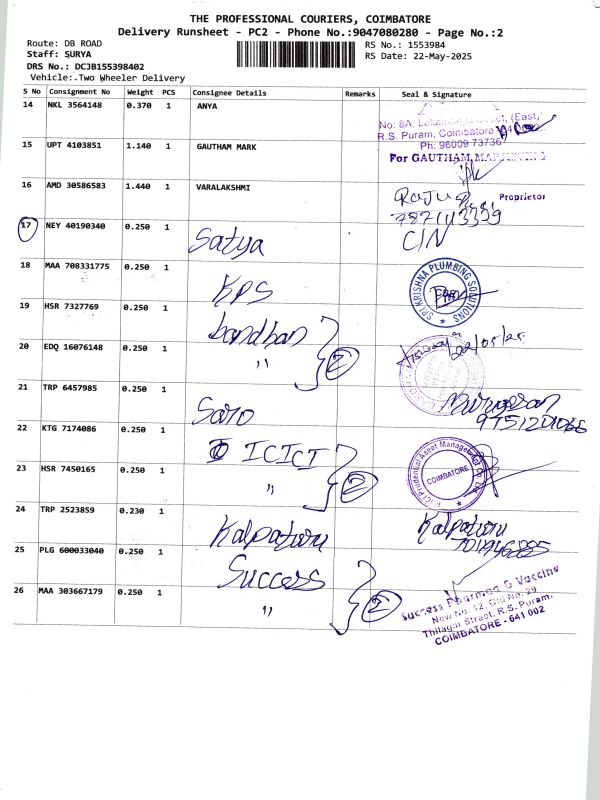 THE PROFESSIONAL COURIERS, COIMBATORE
Delivery Runsheet - PC2 - Phone No.:9047080280 - Page No.:2
Route: DB ROAD
RS No.: 1553984
Staff: SURYA
RS Date: 22-May-2025
DRS No.: DCJB155398402
Vehicle:.Two Wheeler Delivery
S No Consignment No Weight PCS Consignee Details Remarks Seal & Signature
14 NKL 3564148 0.370 1 ANYA
No: 8A, (East),
R.S. Puram, Coimbatore
Ph: 96009 73736
15 UPT 4103851 1.140 1 GAUTHAM MARK
For GAUTHAM MARKETING
Proprietor
16 AMD 30586583 1.440 1 VARALAKSHMI
Raju
17 NEY 40190340 0.250 1 Satya
CIN
18 MAA 708331775 0.250 1 KPS
SRI KRISHNA PLUMBING SOLUTIONS
19 HSR 7327769 0.250 1 bandhan
20 EDQ 16076148 0.250 1 "
2
22/05/25
21 TRP 6457985 0.250 1 Saro
Murugesan
9751201066
22 KTG 7174086 0.250 1 ICICI
23 HSR 7450165 0.250 1 "
2
ICICI Prudential Asset Management Co. Ltd.
COIMBATORE
24 TRP 2523859 0.230 1 Kalpaturu
Kalpaturu
25 PLG 600033040 0.250 1 Success
26 MAA 303667179 0.250 1 "
2
Success Pharma & Vaccine
New No. 12, Old No. 29
Thilagar Street, R.S. Puram,
COIMBATORE - 641 002